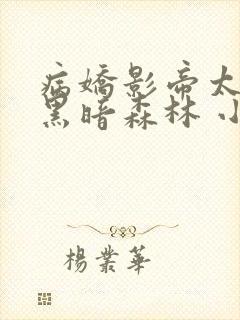 病嬌影帝太
黑暗森林 小
楊業華